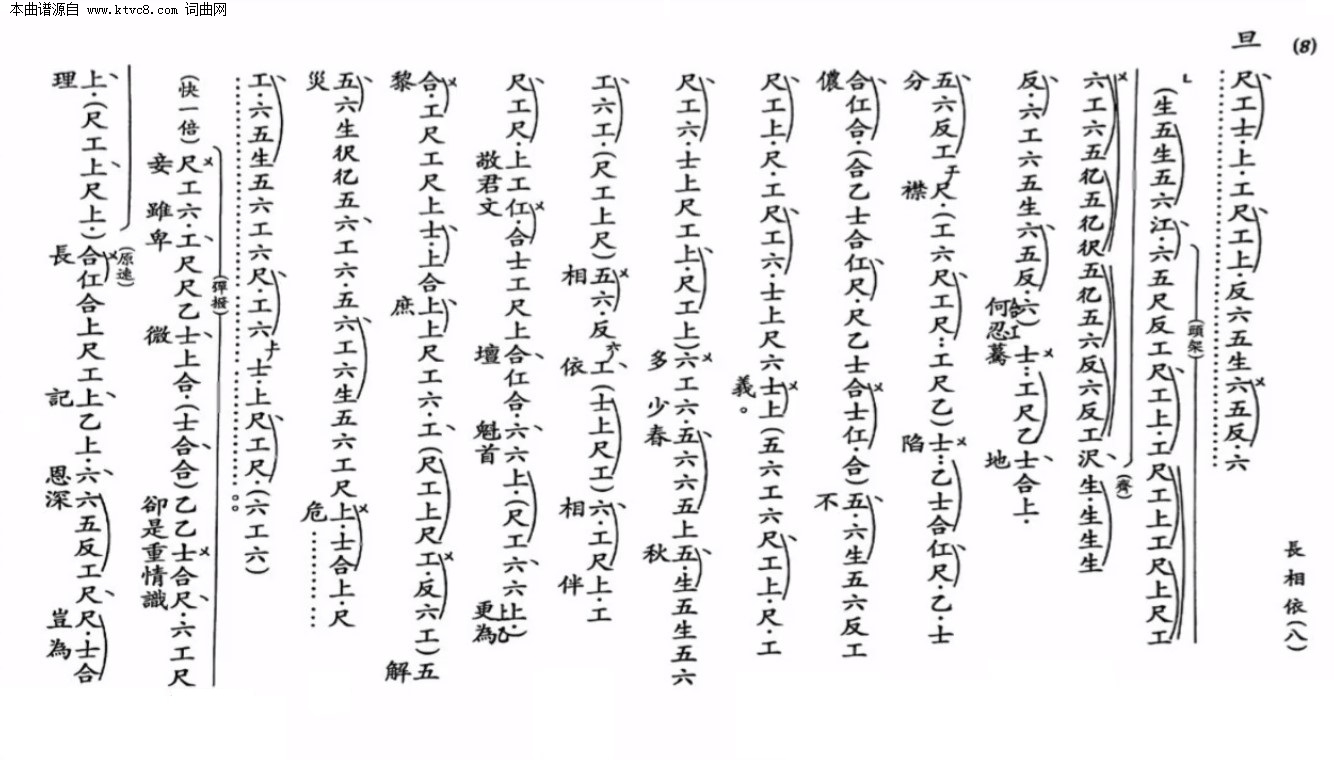 本曲谱源自 www.ktvc8.com 词曲网
(8)
長相依(八)
旦
尺工士·上·工尺工上·反六五生六五反·六
(頭架)
(生五生五六江·六五尺反工尺工上·工尺工上工尺上尺工
(齊)
六工六五伬五伬伬五伬五六反六反工·生·生生生
反·六工六五生六五反·六)士·工尺乙士合上·
合工
何忍驀地
五六反工尺·(工六尺工尺·工尺乙)士·乙士合仜尺·乙·士
分襟陷
合仜合·(合乙士合仜尺·尺乙士合士仜·合)五·六生五六反工
儂不
尺工上·尺·工尺工六·士上尺六士上(五六工六尺工上·尺·工
義。
尺工六·士上尺工上·尺工上)六工六·五六六五上五·生五生五六
多少春秋
工六工·(尺工上尺)五六·反工(士上尺工)六·工尺上·工
六
相依相伴
尺工尺·上工仜·合士工尺上合仜合·六六上·(尺工六六上·)
上乙
敬君文壇魁首更為
合·工尺工尺上士·上合上上尺工六·工(尺工上尺工·反六工)五
黎庶解
五六生伬五六工·六·五六工六生五六工尺上·士合上·尺
災危
工·六五生五六工六尺·工六士·上尺工尺·(六工六)
(彈撥)
(快一倍)尺工六·工尺尺乙士上合·(士合合)乙乙士合尺·六工尺
妾雖卑微卻是重情識
(原速)
上·(尺工上尺上·)合仜合上尺工上乙上·六六五反工尺尺·士合
理長記恩深豈為